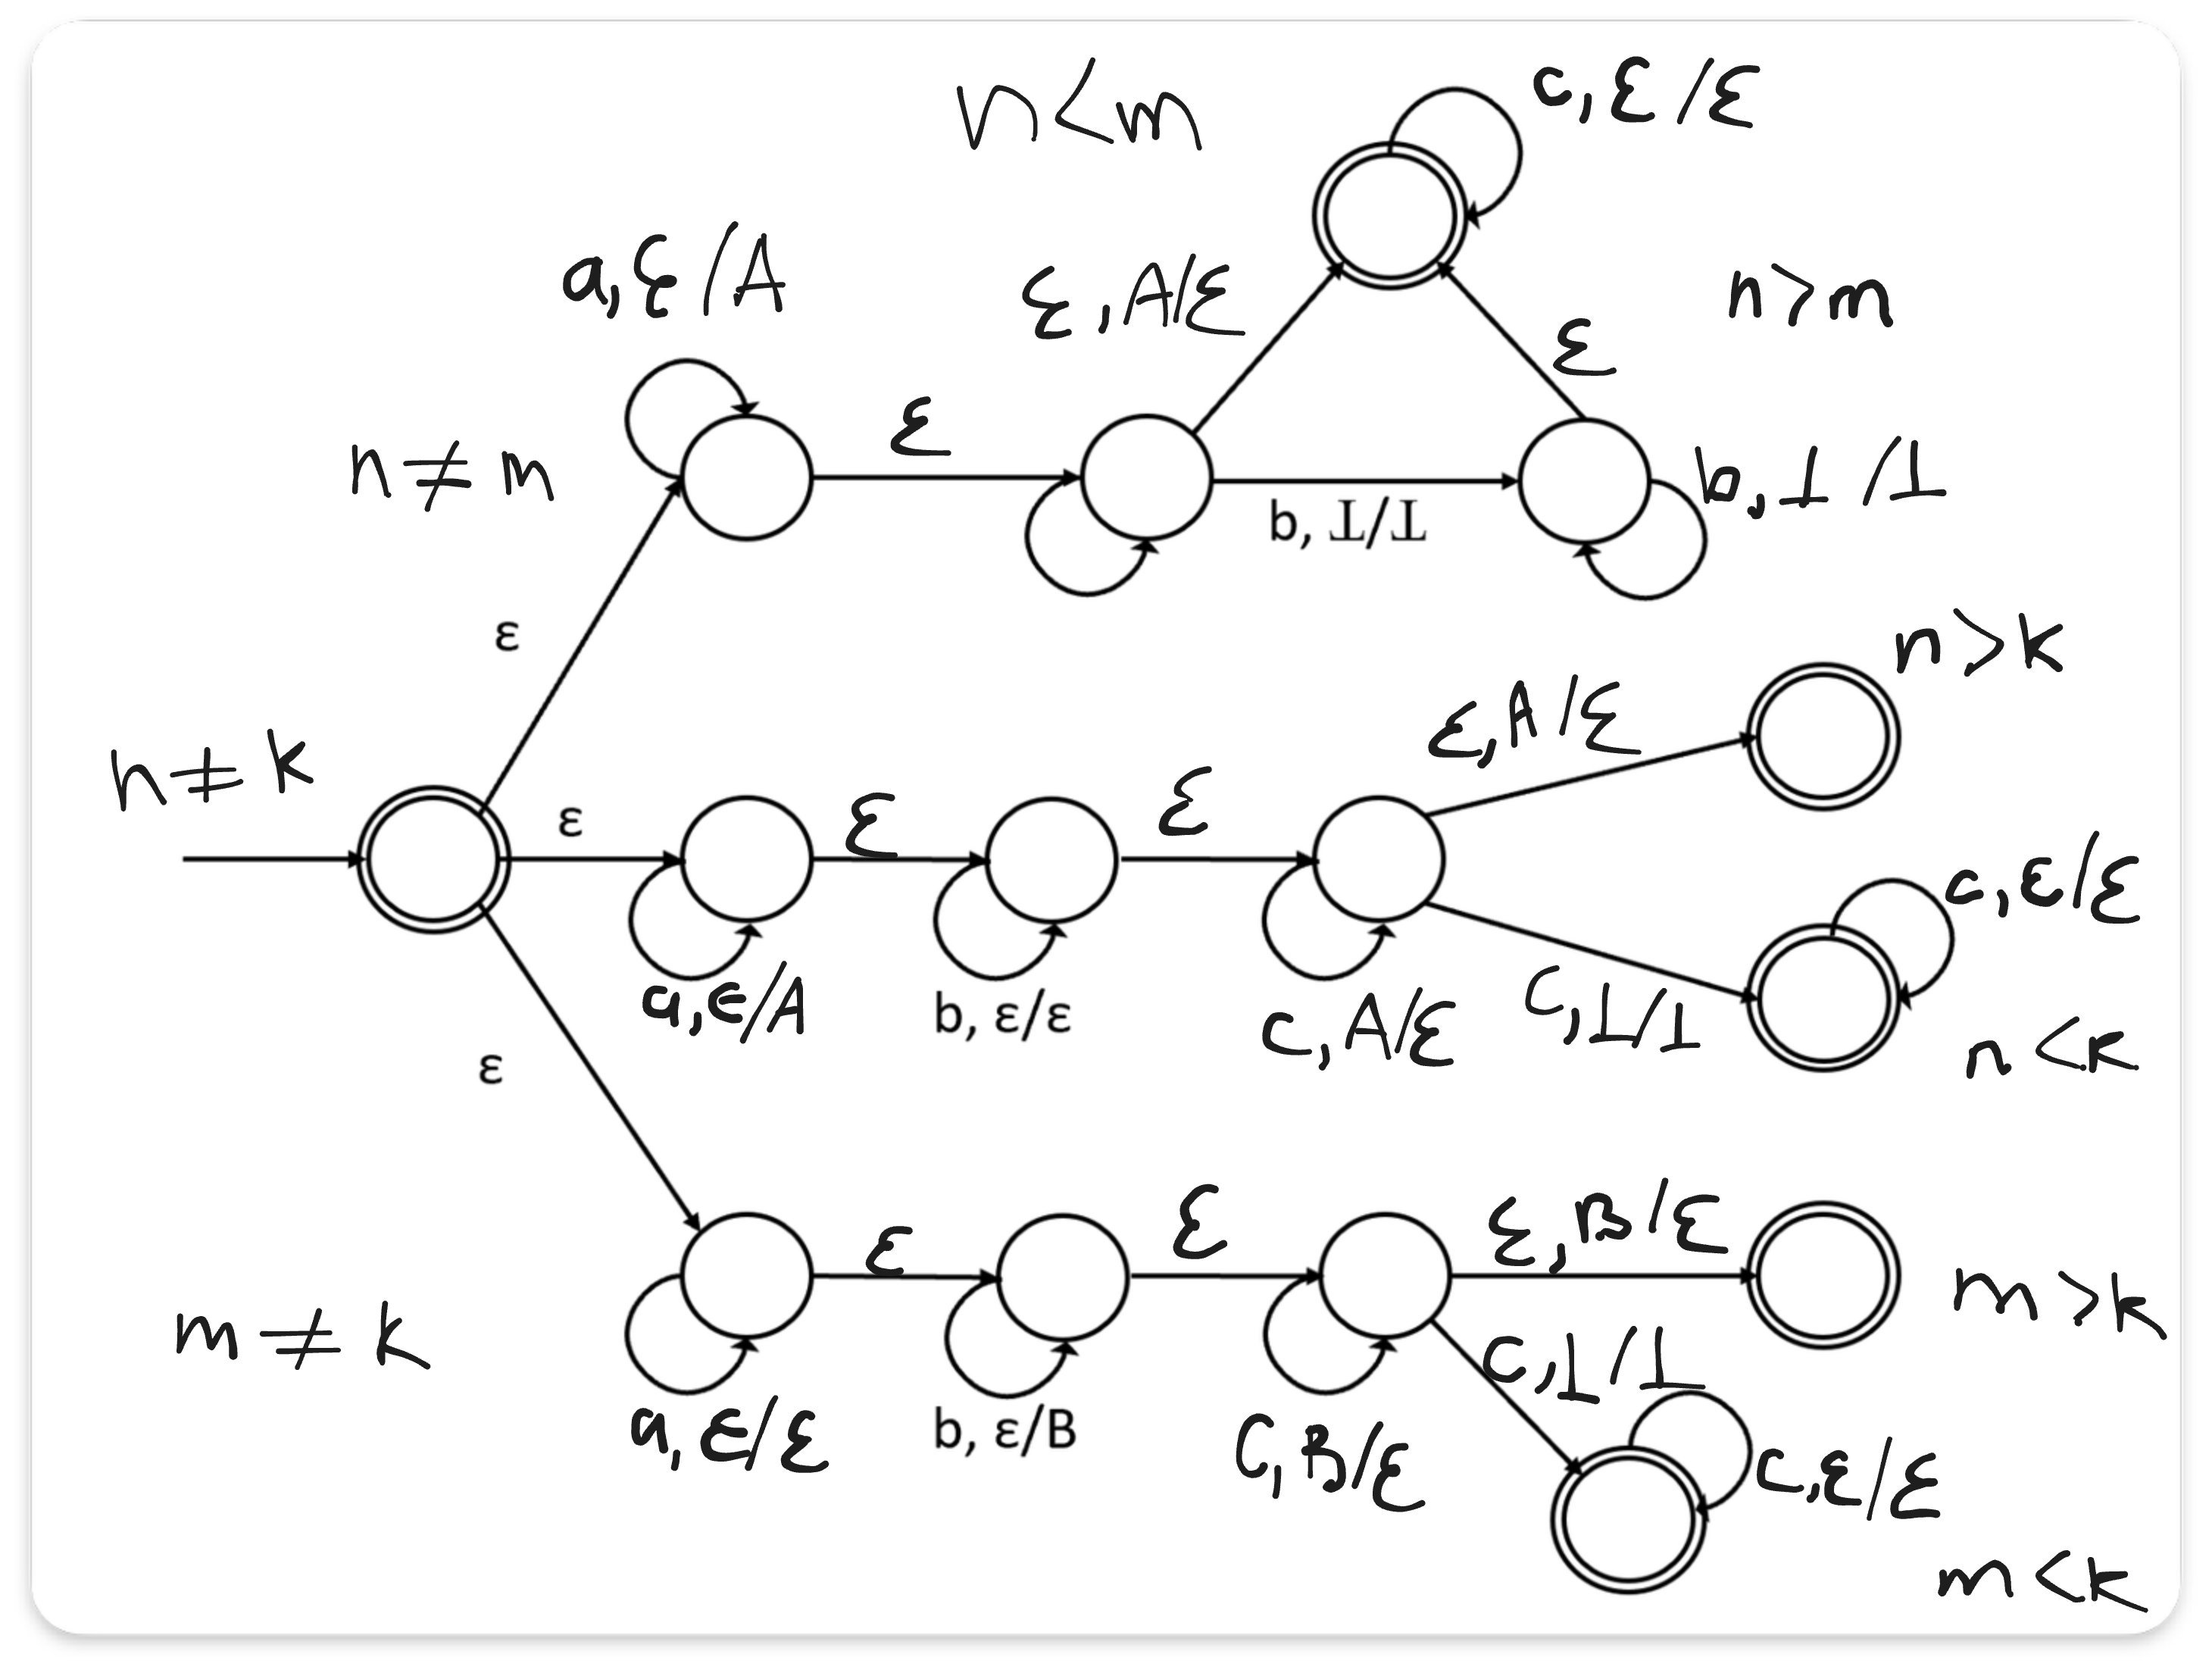 n<m
c, ε/ε
a, ε/A
ε, A/ε
n>m
ε
ε
n≠m
b, ⊥/⊥
b, ⊥/⊥
ε
n>k
ε, A/ε
n≠k
ε
ε
ε
c, ε/ε
a, ε/A
b, ε/ε
c, A/ε
c, ⊥/⊥
n<k
ε
ε
ε
ε, B/ε
m>k
m≠k
c, ⊥/⊥
a, ε/ε
b, ε/B
C, B/ε
c, ε/ε
m<k